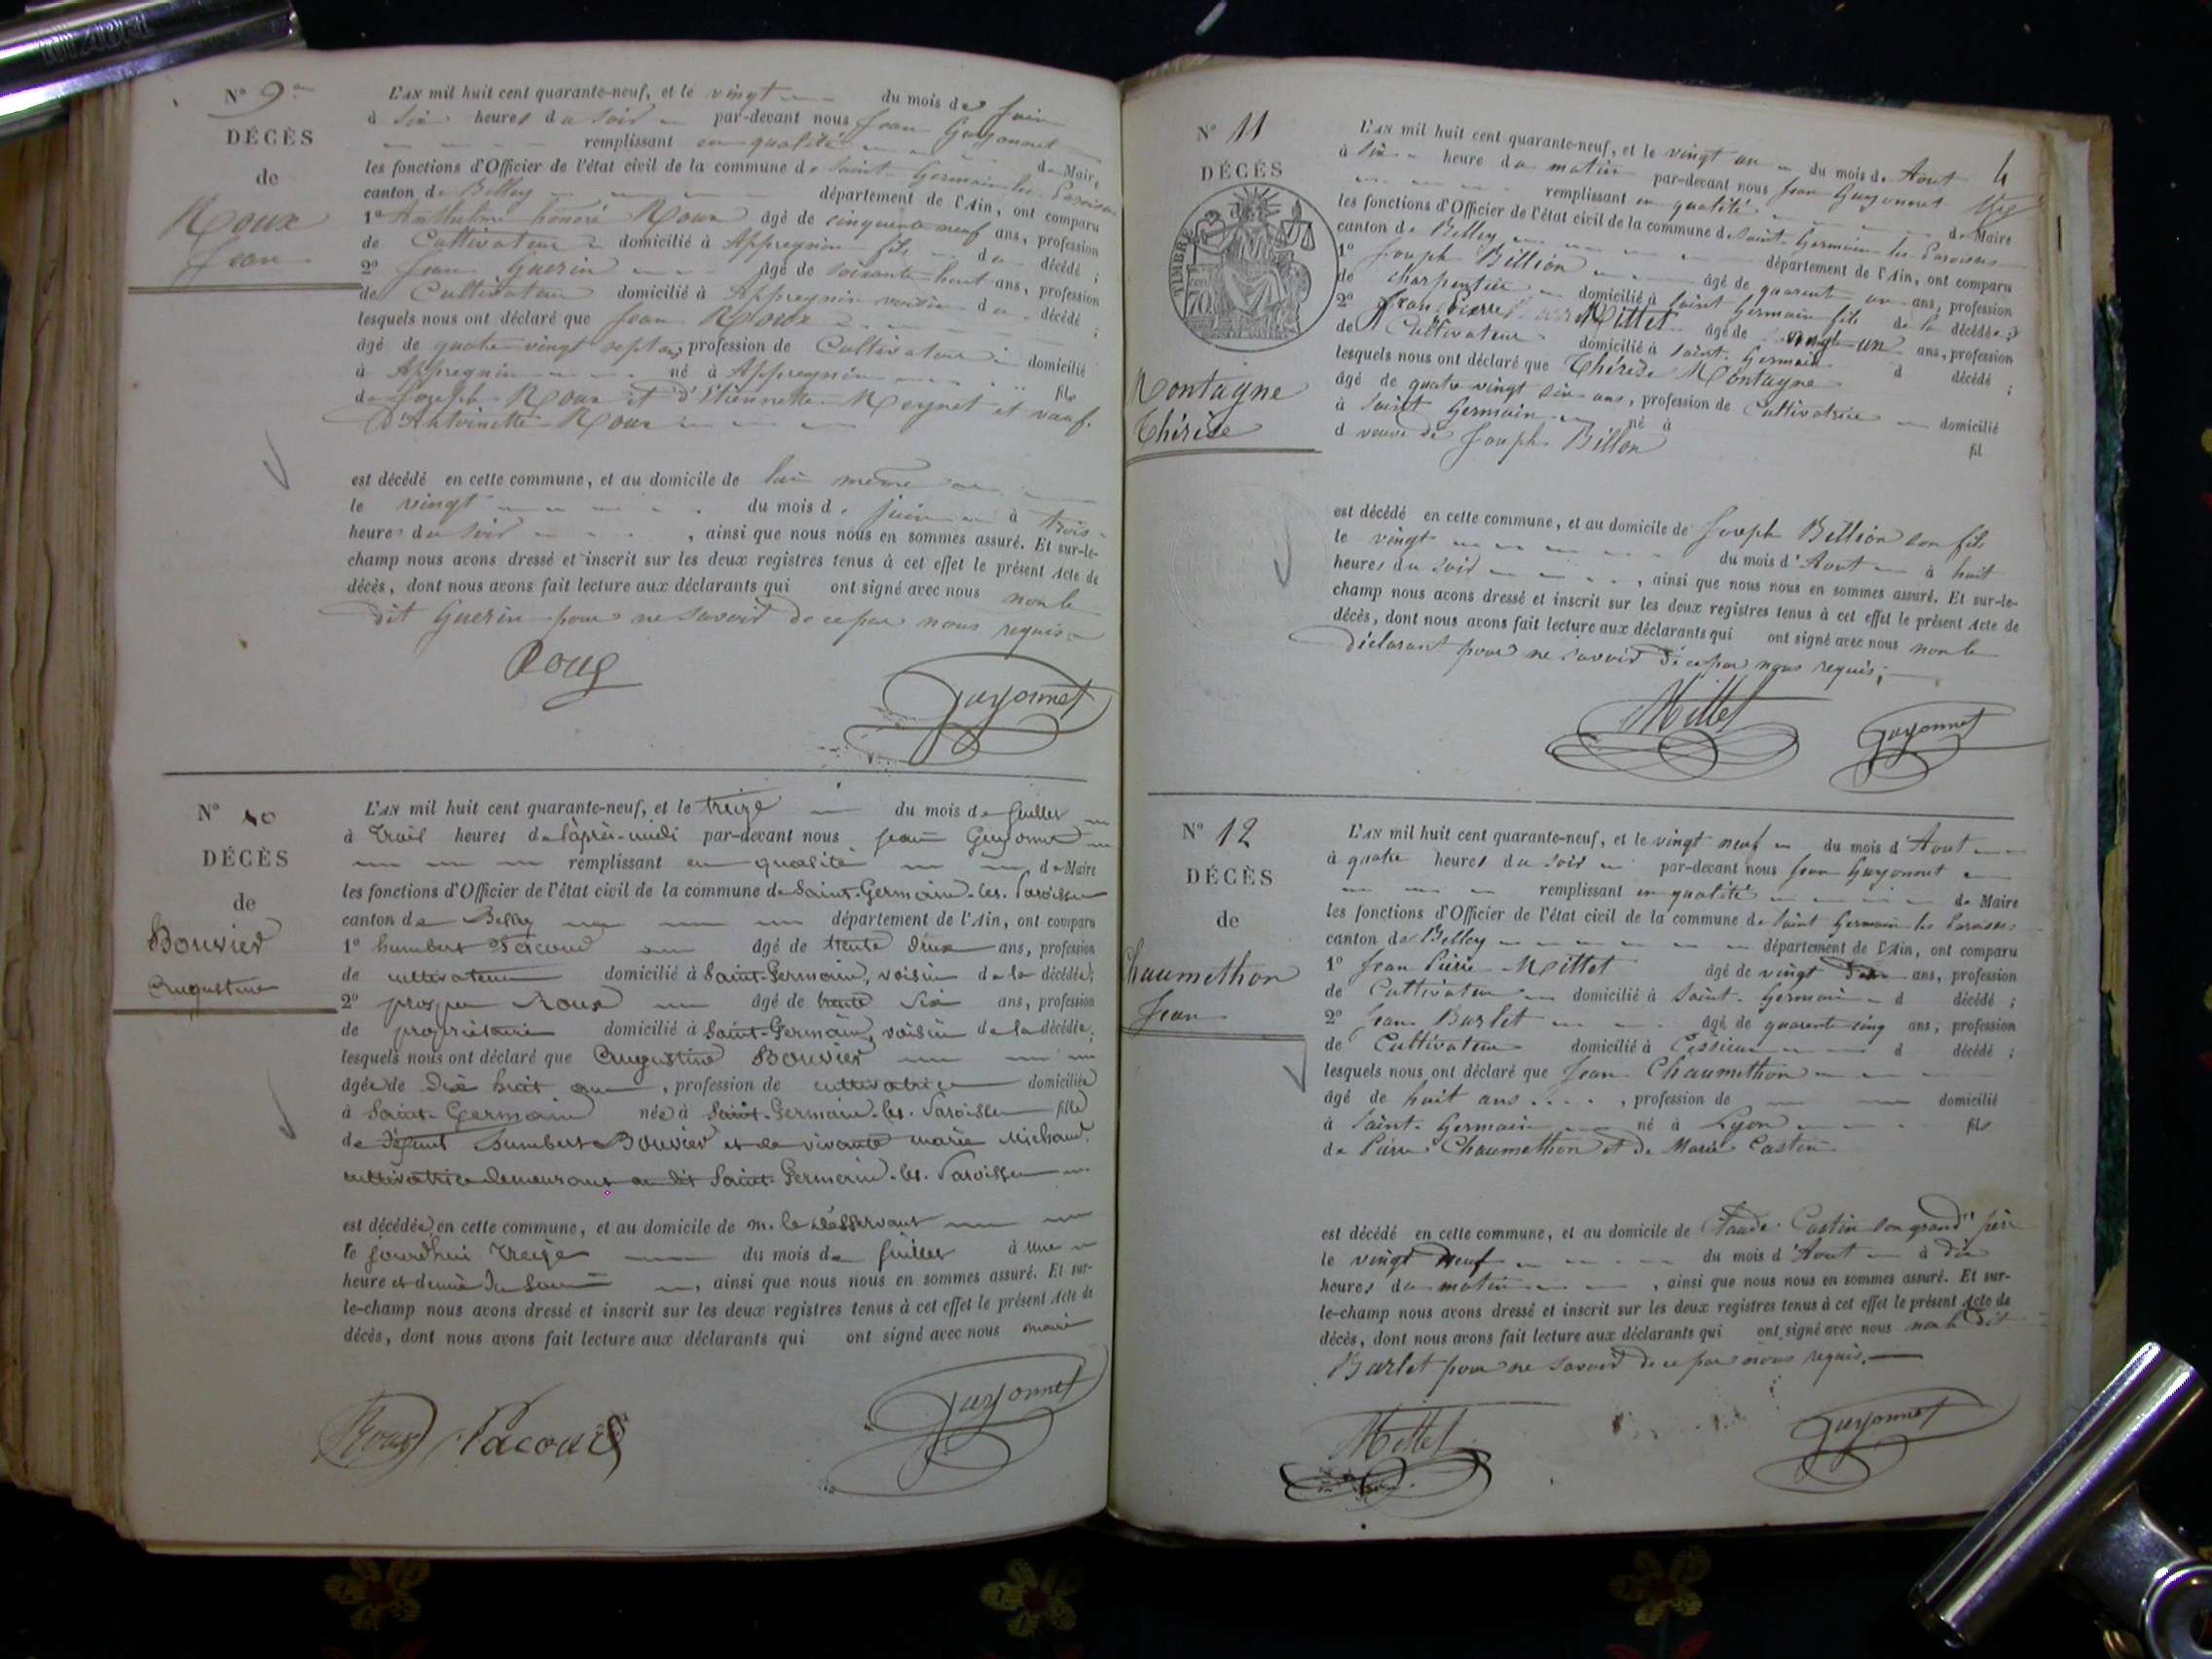 N° 9
DÉCÈS
de
Roux
Jean
L'AN mil huit cent quarante-neuf, et le vingt du mois de Juin
à six heures du soir par-devant nous Jean Guyonnet
remplissant en qualité de Maire
les fonctions d'Officier de l'état civil de la commune de Saint-Germain les Paroisses
canton de Belley département de l'Ain, ont comparu
1° Anthelme honoré Roux âgé de cinquante neuf ans, profession
de Cultivateur domicilié à Appregnin fils du décédé ;
2° Jean Guerin âgé de soixante huit ans, profession
de Cultivateur domicilié à Appregnin voisin du décédé ;
lesquels nous ont déclaré que Jean Roux
âgé de quatre vingt sept ans, profession de Cultivateur domicilié
à Appregnin né à Appregnin fils
de Joseph Roux et d'Etiennette Meynet et veuf
d'Antoinette Roux
est décédé en cette commune, et au domicile de lui même
le vingt du mois de juin à trois
heures du soir , ainsi que nous nous en sommes assuré. Et sur-le-
champ nous avons dressé et inscrit sur les deux registres tenus à cet effet le présent Acte de
décès, dont nous avons fait lecture aux déclarants qui ont signé avec nous non le
dit Guerin pour ne savoir de ce par nous requis
Roux
Guyonnet
N° 10
DÉCÈS
de
Bouvier
Augustine
L'AN mil huit cent quarante-neuf, et le treize du mois de Juillet
à trois heures de l'après-midi par-devant nous jean Guyonnet
remplissant en qualité de Maire
les fonctions d'Officier de l'état civil de la commune de Saint-Germain-les-Paroisses
canton de Belley département de l'Ain, ont comparu
1° humbert Pacoud âgé de trente deux ans, profession
de cultivateur domicilié à Saint-Germain, voisin de la décédée ;
2° prosper Roux âgé de trente six ans, profession
de propriétaire domicilié à Saint-Germain, voisin de la décédée ;
lesquels nous ont déclaré que Augustine Bouvier
âgée de dix huit ans , profession de cultivatrice domiciliée
à Saint-Germain née à Saint-Germain-les-Paroisses fille
de défunt humbert Bouvier et de vivante marie Michaud
cultivatrice demeurant au dit Saint-Germain-les-Paroisses
est décédée en cette commune, et au domicile de m. le desservant
le jourd'hui treize du mois de juillet à une
heure et demie du , ainsi que nous nous en sommes assuré. Et sur-
le-champ nous avons dressé et inscrit sur les deux registres tenus à cet effet le présent Acte de
décès, dont nous avons fait lecture aux déclarants qui ont signé avec nous maire
Roux Pacoud
Guyonnet
4
N° 11
DÉCÈS
TIMBRE
70
Montagne
Thérèse
L'AN mil huit cent quarante-neuf, et le vingt un du mois d'Aout
à six heure du matin par-devant nous Jean Guyonnet
remplissant en qualité de Maire
les fonctions d'Officier de l'état civil de la commune de Saint-Germain les Paroisses
canton de Belley département de l'Ain, ont comparu
1° Joseph Billion âgé de quarante un ans, profession
de charpentier domicilié à Saint Germain fils de la décédée ;
2° Jean Pierre Mittet âgé de vingt un ans, profession
de Cultivateur domicilié à Saint-Germain d décédé ;
lesquels nous ont déclaré que Thérèse Montagne
âgé de quatre vingt six ans, profession de Cultivatrice domicilié
à Saint Germain né à fil
d veuve de Joseph Billon
est décédé en cette commune, et au domicile de Joseph Billion son fils
le vingt du mois d'Aout à huit
heures du soir , ainsi que nous nous en sommes assuré. Et sur-le-
champ nous avons dressé et inscrit sur les deux registres tenus à cet effet le présent Acte de
décès, dont nous avons fait lecture aux déclarants qui ont signé avec nous non le
déclarant pour ne savoir de ce par nous requis ;
Mittet
Guyonnet
N° 12
DÉCÈS
de
Chaumethon
Jean
L'AN mil huit cent quarante-neuf, et le vingt neuf du mois d'Aout
à quatre heures du soir par-devant nous Jean Guyonnet
remplissant en qualité de Maire
les fonctions d'Officier de l'état civil de la commune de Saint Germain les Paroisses
canton de Belley département de l'Ain, ont comparu
1° Jean Pierre Mittet âgé de vingt ans, profession
de Cultivateur domicilié à Saint-Germain d décédé ;
2° Jean Burlet âgé de quarante cinq ans, profession
de Cultivateur domicilié à Cessieux d décédé ;
lesquels nous ont déclaré que Jean Chaumethon
âgé de huit ans , profession de domicilié
à Saint-Germain né à Lyon fils
de Pierre Chaumethon et de Marie Castin
est décédé en cette commune, et au domicile de Claude Castin son grand père
le vingt neuf du mois d'Aout à dix
heures du matin , ainsi que nous nous en sommes assuré. Et sur-
le-champ nous avons dressé et inscrit sur les deux registres tenus à cet effet le présent Acte de
décès, dont nous avons fait lecture aux déclarants qui ont signé avec nous non le dit
Burlet pour ne savoir de ce par nous requis.
Mittet
Guyonnet